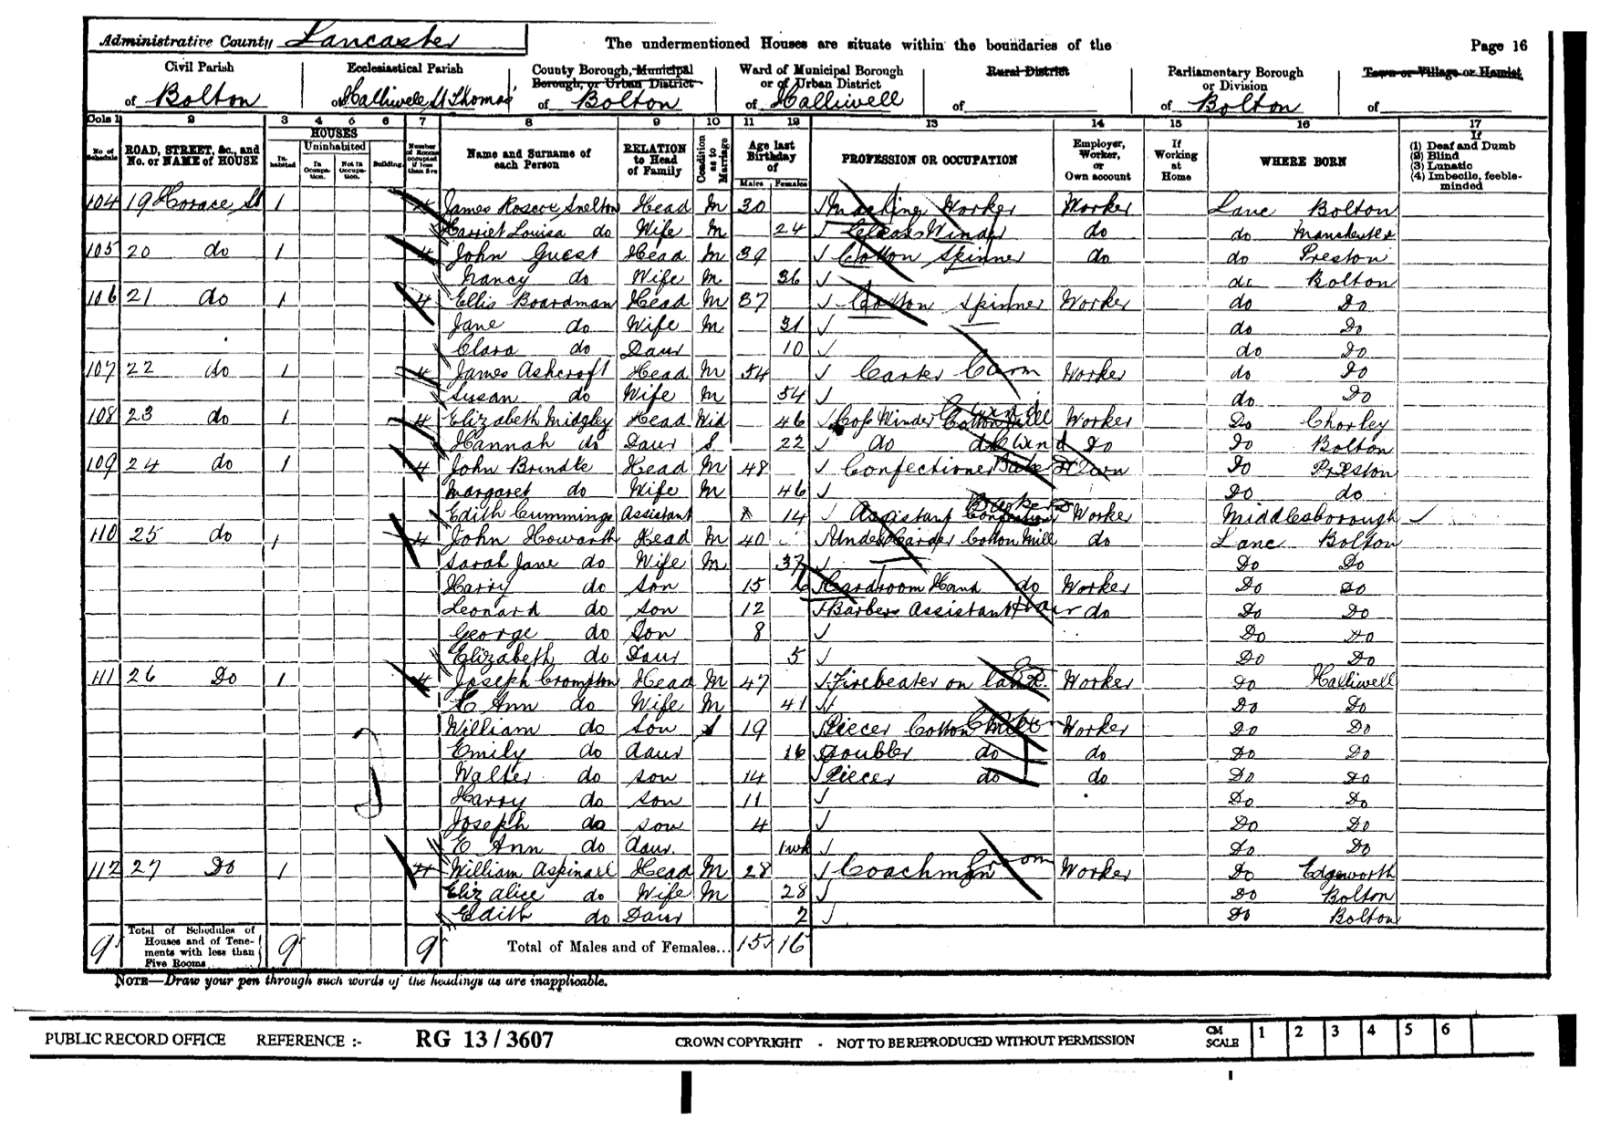 Administrative County Lancaster The undermentioned Houses are situate within the boundaries of the Page 16
Civil Parish Ecclesiastical Parish County Borough, Municipal Borough, or Urban District Ward of Municipal Borough or of Urban District Rural District Parliamentary Borough or Division Town or Village or Hamlet
of Bolton of Halliwell St Thomas of Bolton of Halliwell of of Bolton of
Cols 1 2 3 4 5 6 7 8 9 10 11 12 13 14 15 16 17
No. of Schedule ROAD, STREET, &c., and No. or NAME of HOUSE HOUSES Inhabited Uninhabited In Occupation. Not in Occupation. Building. Number of Rooms occupied if less than five Name and Surname of each Person RELATION to Head of Family Condition as to Marriage Age last Birthday of Males Females PROFESSION OR OCCUPATION Employer, Worker, or Own account If Working at Home WHERE BORN If (1) Deaf and Dumb (2) Blind (3) Lunatic (4) Imbecile, feeble-minded
104 19 Horace St 1 4 James Roscoe Snelton Head M 30 Worker Worker Lanc Bolton
Harriet Louisa do Wife M 24 Winder do do Manchester
105 20 do 1 4 John Guest Head M 39 Cotton Spinner do do Preston
Nancy do Wife M 36 do Bolton
106 21 do 1 4 Ellis Boardman Head M 37 Cotton Spinner Worker do Do
Jane do Wife M 31 do Do
Clara do Daur 10 do Do
107 22 do 1 4 James Ashcroft Head M 54 Carter Worker do Do
Susan do Wife M 54 do Do
108 23 do 1 4 Elizabeth Midgley Head Wid 46 Cop Winder Cotton Mill Worker Do Chorley
Hannah do Daur S 22 do do Do Do Bolton
109 24 do 1 4 John Brindle Head M 48 Confectioner Do Preston
Margaret do Wife M 46 Do do
Edith Cummings Assistant 14 Assistant Confectioner Worker Middlesborough
110 25 do 1 4 John Howarth Head M 40 Under Carder Cotton Mill do Lanc Bolton
Sarah Jane do Wife M 37 Do Do
Harry do Son 15 Cardroom Hand do Worker Do Do
Leonard do Son 12 Barbers Assistant Hair do Do Do
George do Son 8 Do Do
Elizabeth do Daur 5 Do Do
111 26 Do 1 4 Joseph Crompton Head M 47 Firebeater on land Worker Do Halliwell
E Ann do Wife M 41 Do Do
William do Son S 19 Piecer Cotton Mill Worker Do Do
Emily do daur 16 Doubler do do Do Do
Walter do son 14 Piecer do do Do Do
Harry do son 11 Do Do
Joseph do son 4 Do Do
E Ann do daur. 1wk Do Do
112 27 Do 1 4 William Aspinall Head M 28 Coachman Groom Worker Do Edgworth
Eliz Alice do Wife M 28 Do Bolton
Edith do Daur 2 Do Bolton
9 Total of Schedules of Houses and of Tenements with less than Five Rooms 9 9 Total of Males and of Females... 15 16
NOTE—Draw your pen through such words of the headings as are inapplicable.
PUBLIC RECORD OFFICE REFERENCE :- RG 13 / 3607 CROWN COPYRIGHT - NOT TO BE REPRODUCED WITHOUT PERMISSION CM SCALE 1 2 3 4 5 6